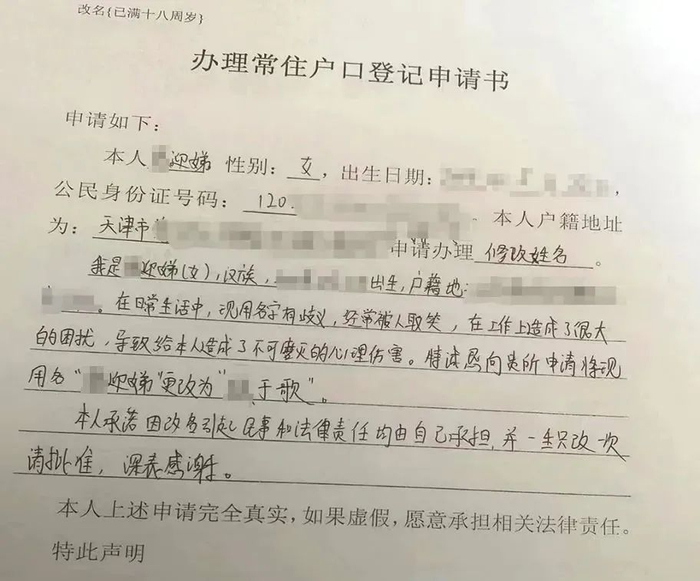 改名{已满十八周岁}
办理常住户口登记申请书
申请如下:
本人 迎娣 性别: 女 ,出生日期: ,
公民身份证号码: 120. 本人户籍地址
为: 天津市 申请办理 修改姓名 。
我是 迎娣(女),汉族, 出生,户籍地:
。在日常生活中,现用名字有歧义,经常被人取笑,在工作上造成了很大
的困扰,导致给本人造成了不可磨灭的心理伤害。特该 向贵所申请将现
用名“ 迎娣”更改为“ 于歌”。
本人承诺因改名引起民事和法律责任均由自己承担,并一生只改一次
请批准,深表感谢。
本人上述申请完全真实,如果虚假,愿意承担相关法律责任。
特此声明